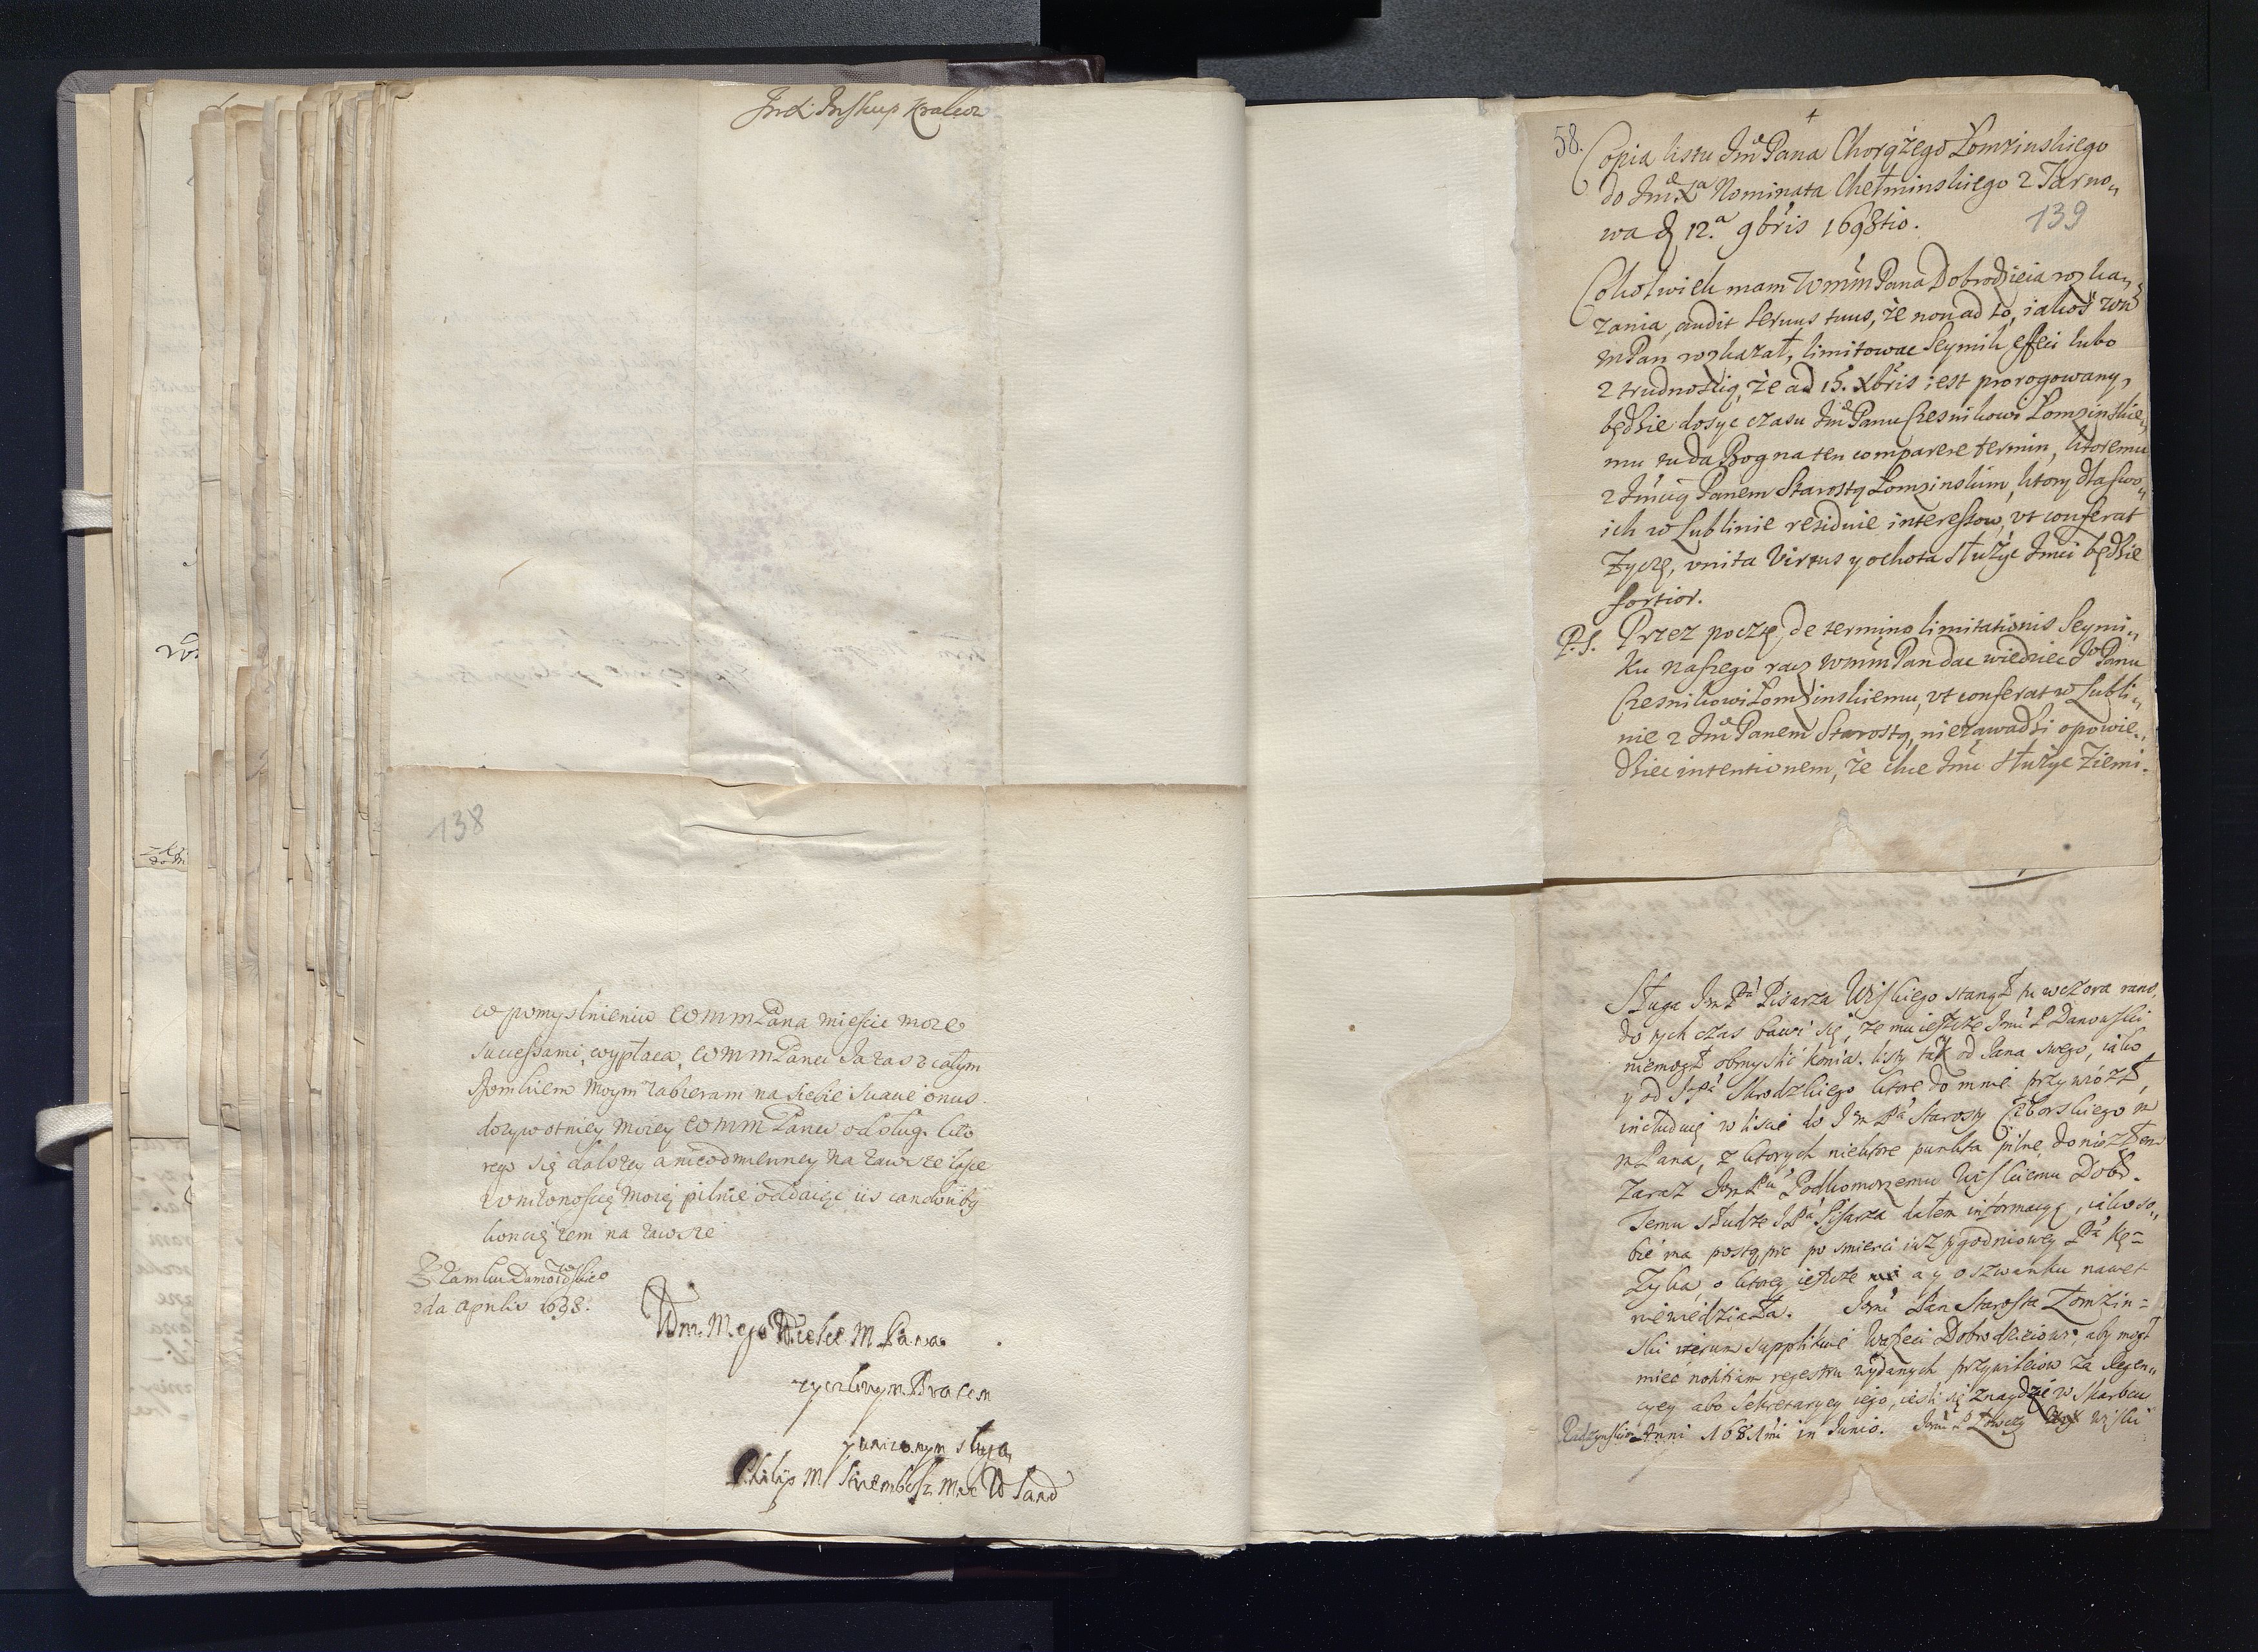 Biskup Krakow
138
w pomyslnieniu WMMPana miescie może
sucessami, wypłaca, WMMPanu Ja zas z całym
domkiem moym zabieram na siebie suaue onus
dozywotniey moiey WMMPanu odsług. kto
rego się dalszey a nieodmienney na zawsze łasce
z uniżonoscią moią pilnie oddaiąc iis candoriby
koncię zem na zawsze
Z Zamku
2da Aprilis 1698.
Wm. Mego Wielce M Pana
zyczliwym Bratem
y unizonym sługą
Philip
58.
Copia listu Jmć Pana Chorążego Łomzinskiego
do Jmć Xa Nominata Chełminskiego z Tarno„
wa d 12.a 9bris 1693tio.
139
Cokolwiek mam WMM Pana Dobrodzieia roska„
zania, audit seruus tuus, że non ad to, iakoś WM
MPan roskazał, limitowac Seymik effeci lubo
z trudnoscią, że ad 15. Xbris iest prorogowany,
będzie dosyc czasu Jmć Panu Czesnikowi Łomzinskie„
mu tu da Bog na ten comparere termin, ktoremu
z Jmcią Panem Starostą Łomzinskim, ktory dla swo„
ich w Lublinie residuie interessow, vt conferat
życzę, vnita Virtus y ochota słuzyc Jmci będzie
fortior.
P.S. Przez pocztę, de termino limitationis Seymi„
ku naszego racz WMMPan dac wiedziec Jo Panu
Czesnikowi Łomzinskiemu, vt conferat w Lubli„
nie z Jmć Panem Starostą, niezawadzi opowie„
dziec intentionem, że chce Jmć słuzyc Ziemi.
Sługa JmPa Pisarza Wiskiego stanął tu wczora rano,
do tych czas bawi się, ze mu ieszcze Jmć P Danowski
niemogł obmyslić konia. listy tak od Pana swego, iako
y od JPa Skrodzkiego ktore do mnie przywiozł,
includuię w liscie do JmPa Starosty Ciborskiego m
mPana, z ktorych niektore punkta pilne doniozłem
zaraz JmPu Podkomorzemu Wiskiemu Dobr.
Temu słudze JPa Pisarza dałem informacyę, iako so„
bie ma postąpic po smierci iusz tygodniowey Pa Kę=
zyka, o ktorey ieszcze a y o szwanku nawet
niewiedziała. Jmć Pan Starosta Łomzin=
ski iterum supplikuie Waszeci Dobrodzieiowi, aby mogł
mieć notitiam regestru wydanych przywileiow za Regen„
cyey abo Sekretaryey iego, iesli się znaydzie w Skarbcu
Radzynskim Anni 1681mi in Junio. Jmć P Łowczy Wiski